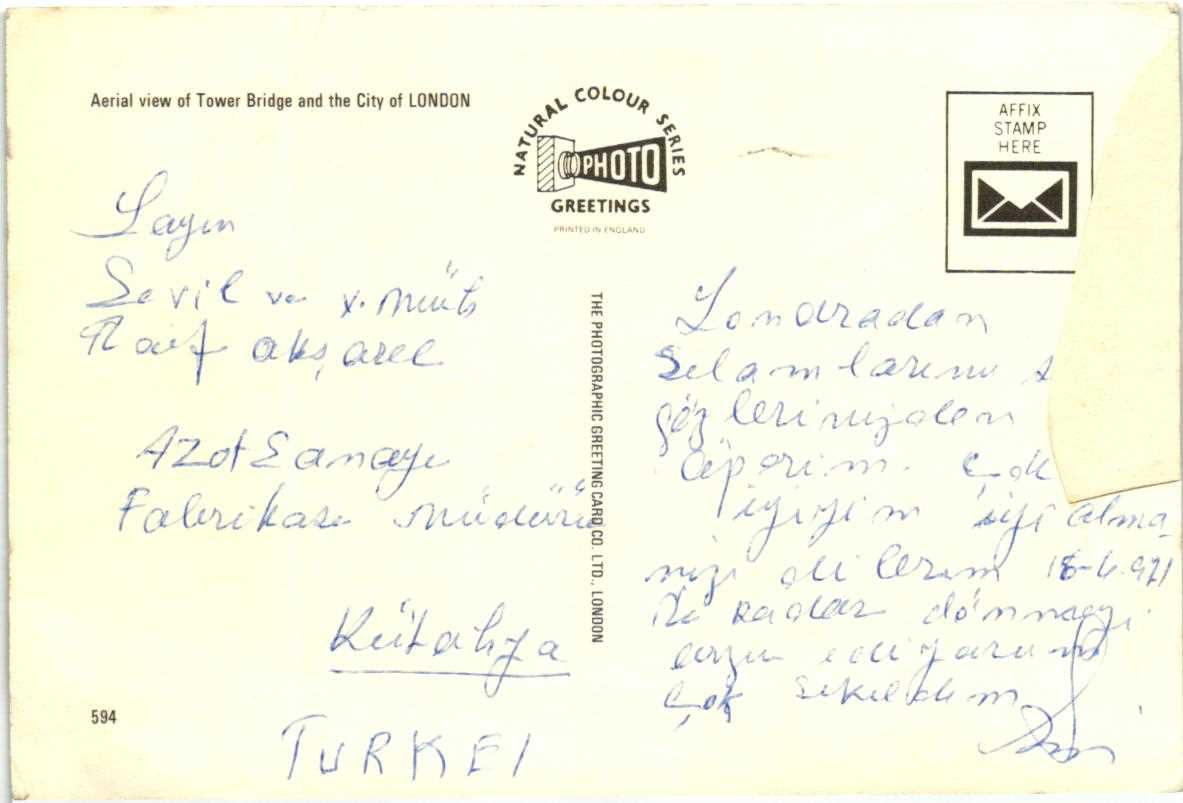 Aerial view of Tower Bridge and the City of LONDON
NATURAL COLOUR SERIES
PHOTO
GREETINGS
PRINTED IN ENGLAND
AFFIX
STAMP
HERE
Sayın
Sevil ve Y. Müh
Raif akşarel
Azot Sanayi
Fabrikası müdürü
Kütahya
TURKEI
594
THE PHOTOGRAPHIC GREETING CARD CO. LTD., LONDON
Londradan
Selamlarımı
gözlerinizden
öperim. Çok
iyiyim iyi olma
nızı dilerim 18-6.971
kadar dönmeyi
arzu ediyorum
Çok sıkıldım